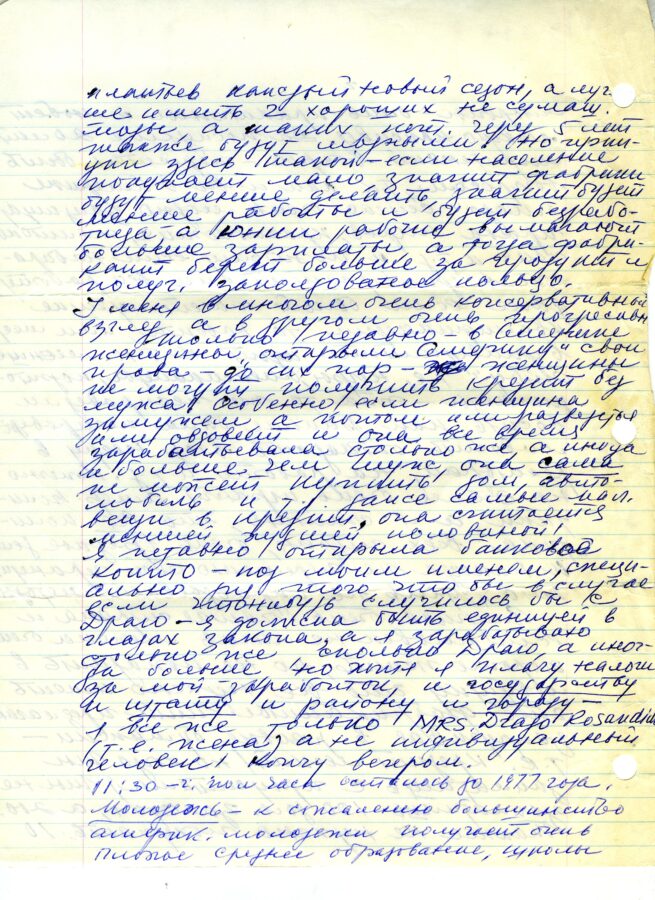 платьев каждый новый сезон, а луч
ше иметь 2 хороших не сумаш.
моды, а таких нет. Через 5 лет
также будут модными. Но прин-
цип здесь такой – если население
покупает мало значит фабрики
будут меньше делать, значит будет
меньше работы и будет безрабо-
тица а юнии рабочие вымагают
больше зарплаты а тогда фабри-
кант берет больше за продукт и
получ. заколдованое кольцо.
У меня в многом очень консервативный
взгляд а в другом очень прогресивн
Только недавно – в Америке
женщины открыли "Америку" свои
права – до сих пор – женщины
не могут получить кредит без
мужа, особенно если женщина
замужем а потом или разведется
или овдовеит и она все время
зарабатывала столько же а иногда
и больше чем муж, она сама
не может купить дом, авто-
мобиль и т. даже самые мал.
вещи в кредит, она считается
меншей лучшей половиной!
Я недавно открыла банковое
конто – под моим именем, специ-
ально для того что бы в случае
если что нибудь случилось бы с
Драго – я должна быть единицей в
глазах закона, а я зарабатываю
столько же сколько Драго, а иног-
да больше но хотя я плачу налоги
за мой заработок и государству
и штату и району и городу –
я все же только MRS. Drago Rosandich
(т.е. жена) а не индивидуальный
человек! Кончу вечером.
11:30 – пол часа осталось до 1977 года.
Молодежь – к сожалению большинство
америк. молодежи получает очень
плохое среднее образование, школы